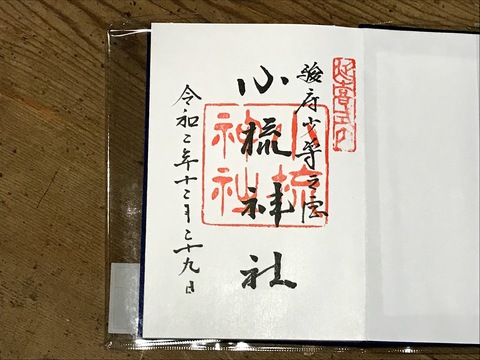 延喜式内
駿府少将之宮
小梳神社
小梳
神社
令和二年十二月二十九日